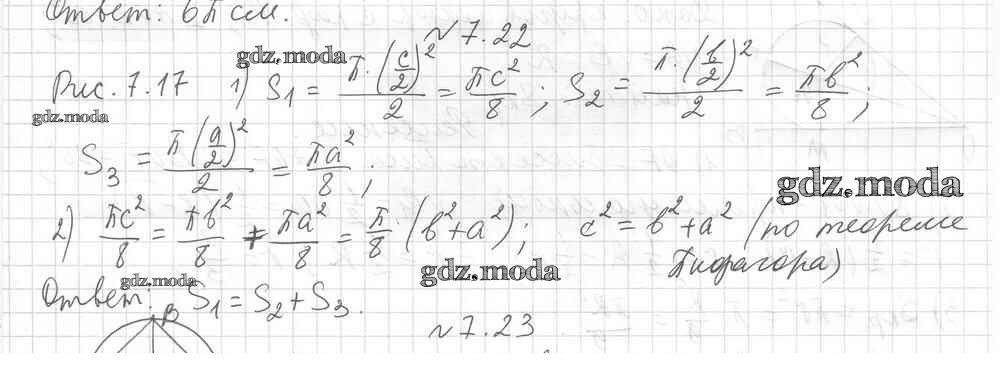 Ответ: 6π см.
№ 7.22
gdz.moda
Рис. 7.17 1) S₁ = π·(c/2)²/2 = πc²/8; S₂ = π·(b/2)²/2 = πb²/8;
gdz.moda
S₃ = π(a/2)²/2 = πa²/8;
gdz.moda
2) πc²/8 = πb²/8 + πa²/8 = π/8·(b²+a²); c² = b²+a² (по теореме
Пифагора)
gdz.moda
gdz.moda
Ответ: S₁ = S₂ + S₃.
B
№ 7.23